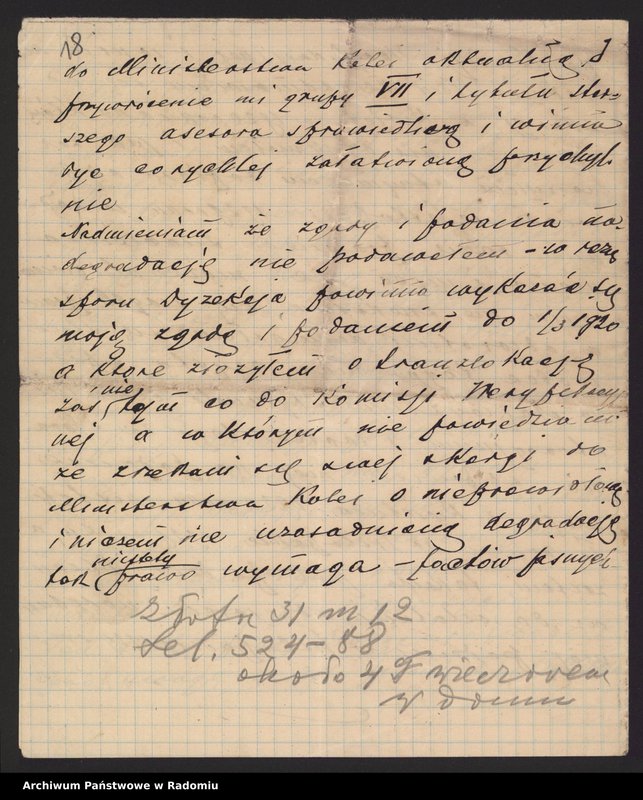 18
do Ministerstwa Kolei aktualną
przywrócenie mi grupy VII i tytułu star-
szego asesora sprawiedliwą i winna
być corychlej załatwioną przychyl-
nie
Nadmieniam że zgody i podania na
degradację nie podawałem - w
sporu Dyrekcja powinna wykazać się
moją zgodą i podaniem do 1/3 1920
a które złożyłem o translokację
zaś nie tym co do Komisji Weryfikacyj
nej a w którym nie powiedziano
że zrzekam się swej skargi do
Ministerstwa Kolei o nieprawidłową
i niczem nie uzasadnioną degradację
tak niestety prawo wymaga - faktów
Złota 31 m 12
tel. 524-88
około 4 wieczorem
w domu
Archiwum Państwowe w Radomiu